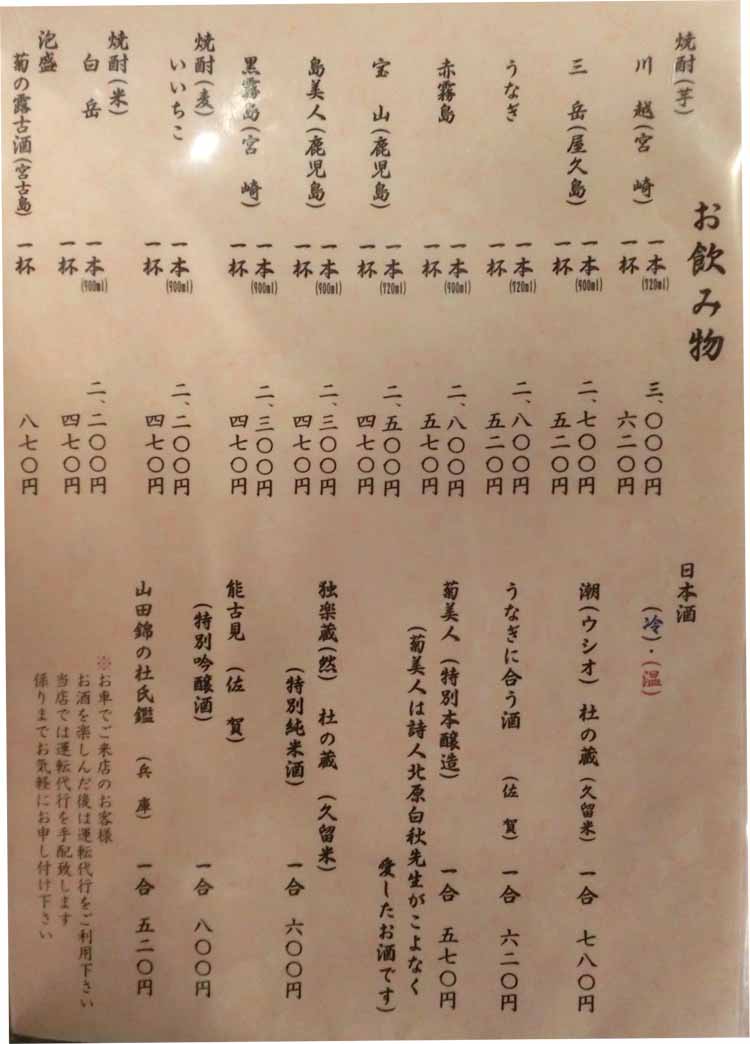 お飲み物
焼酎(芋)
川越(宮崎) 一本(720ml) 三、〇〇〇円
一杯 六二〇円
三岳(屋久島) 一本(900ml) 二、七〇〇円
一杯 五二〇円
うなぎ 一本(720ml) 二、八〇〇円
一杯 五二〇円
赤霧島 一本(900ml) 二、八〇〇円
一杯 五七〇円
宝山(鹿児島) 一本(720ml) 二、五〇〇円
一杯 四七〇円
島美人(鹿児島) 一本(900ml) 二、三〇〇円
一杯 四七〇円
黒霧島(宮崎) 一本(900ml) 二、三〇〇円
一杯 四七〇円
焼酎(麦)
いいちこ 一本(900ml) 二、二〇〇円
一杯 四七〇円
焼酎(米)
白岳 一本(900ml) 二、二〇〇円
一杯 四七〇円
泡盛
菊の露古酒(宮古島) 一杯 八七〇円
日本酒
(冷)・(温)
潮(ウシオ) 杜の蔵(久留米) 一合 七八〇円
うなぎに合う酒 (佐賀) 一合 六二〇円
菊美人(特別本醸造) 一合 五七〇円
(菊美人は詩人北原白秋先生がこよなく
愛したお酒です)
独楽蔵(然) 杜の蔵 (久留米)
(特別純米酒) 一合 六〇〇円
能古見 (佐賀)
(特別吟醸酒) 一合 八〇〇円
山田錦の杜氏鑑 (兵庫) 一合 五二〇円
※お車でご来店のお客様
お酒を楽しんだ後は運転代行をご利用下さい
当店では運転代行を手配致します
係りまでお気軽にお申し付け下さい